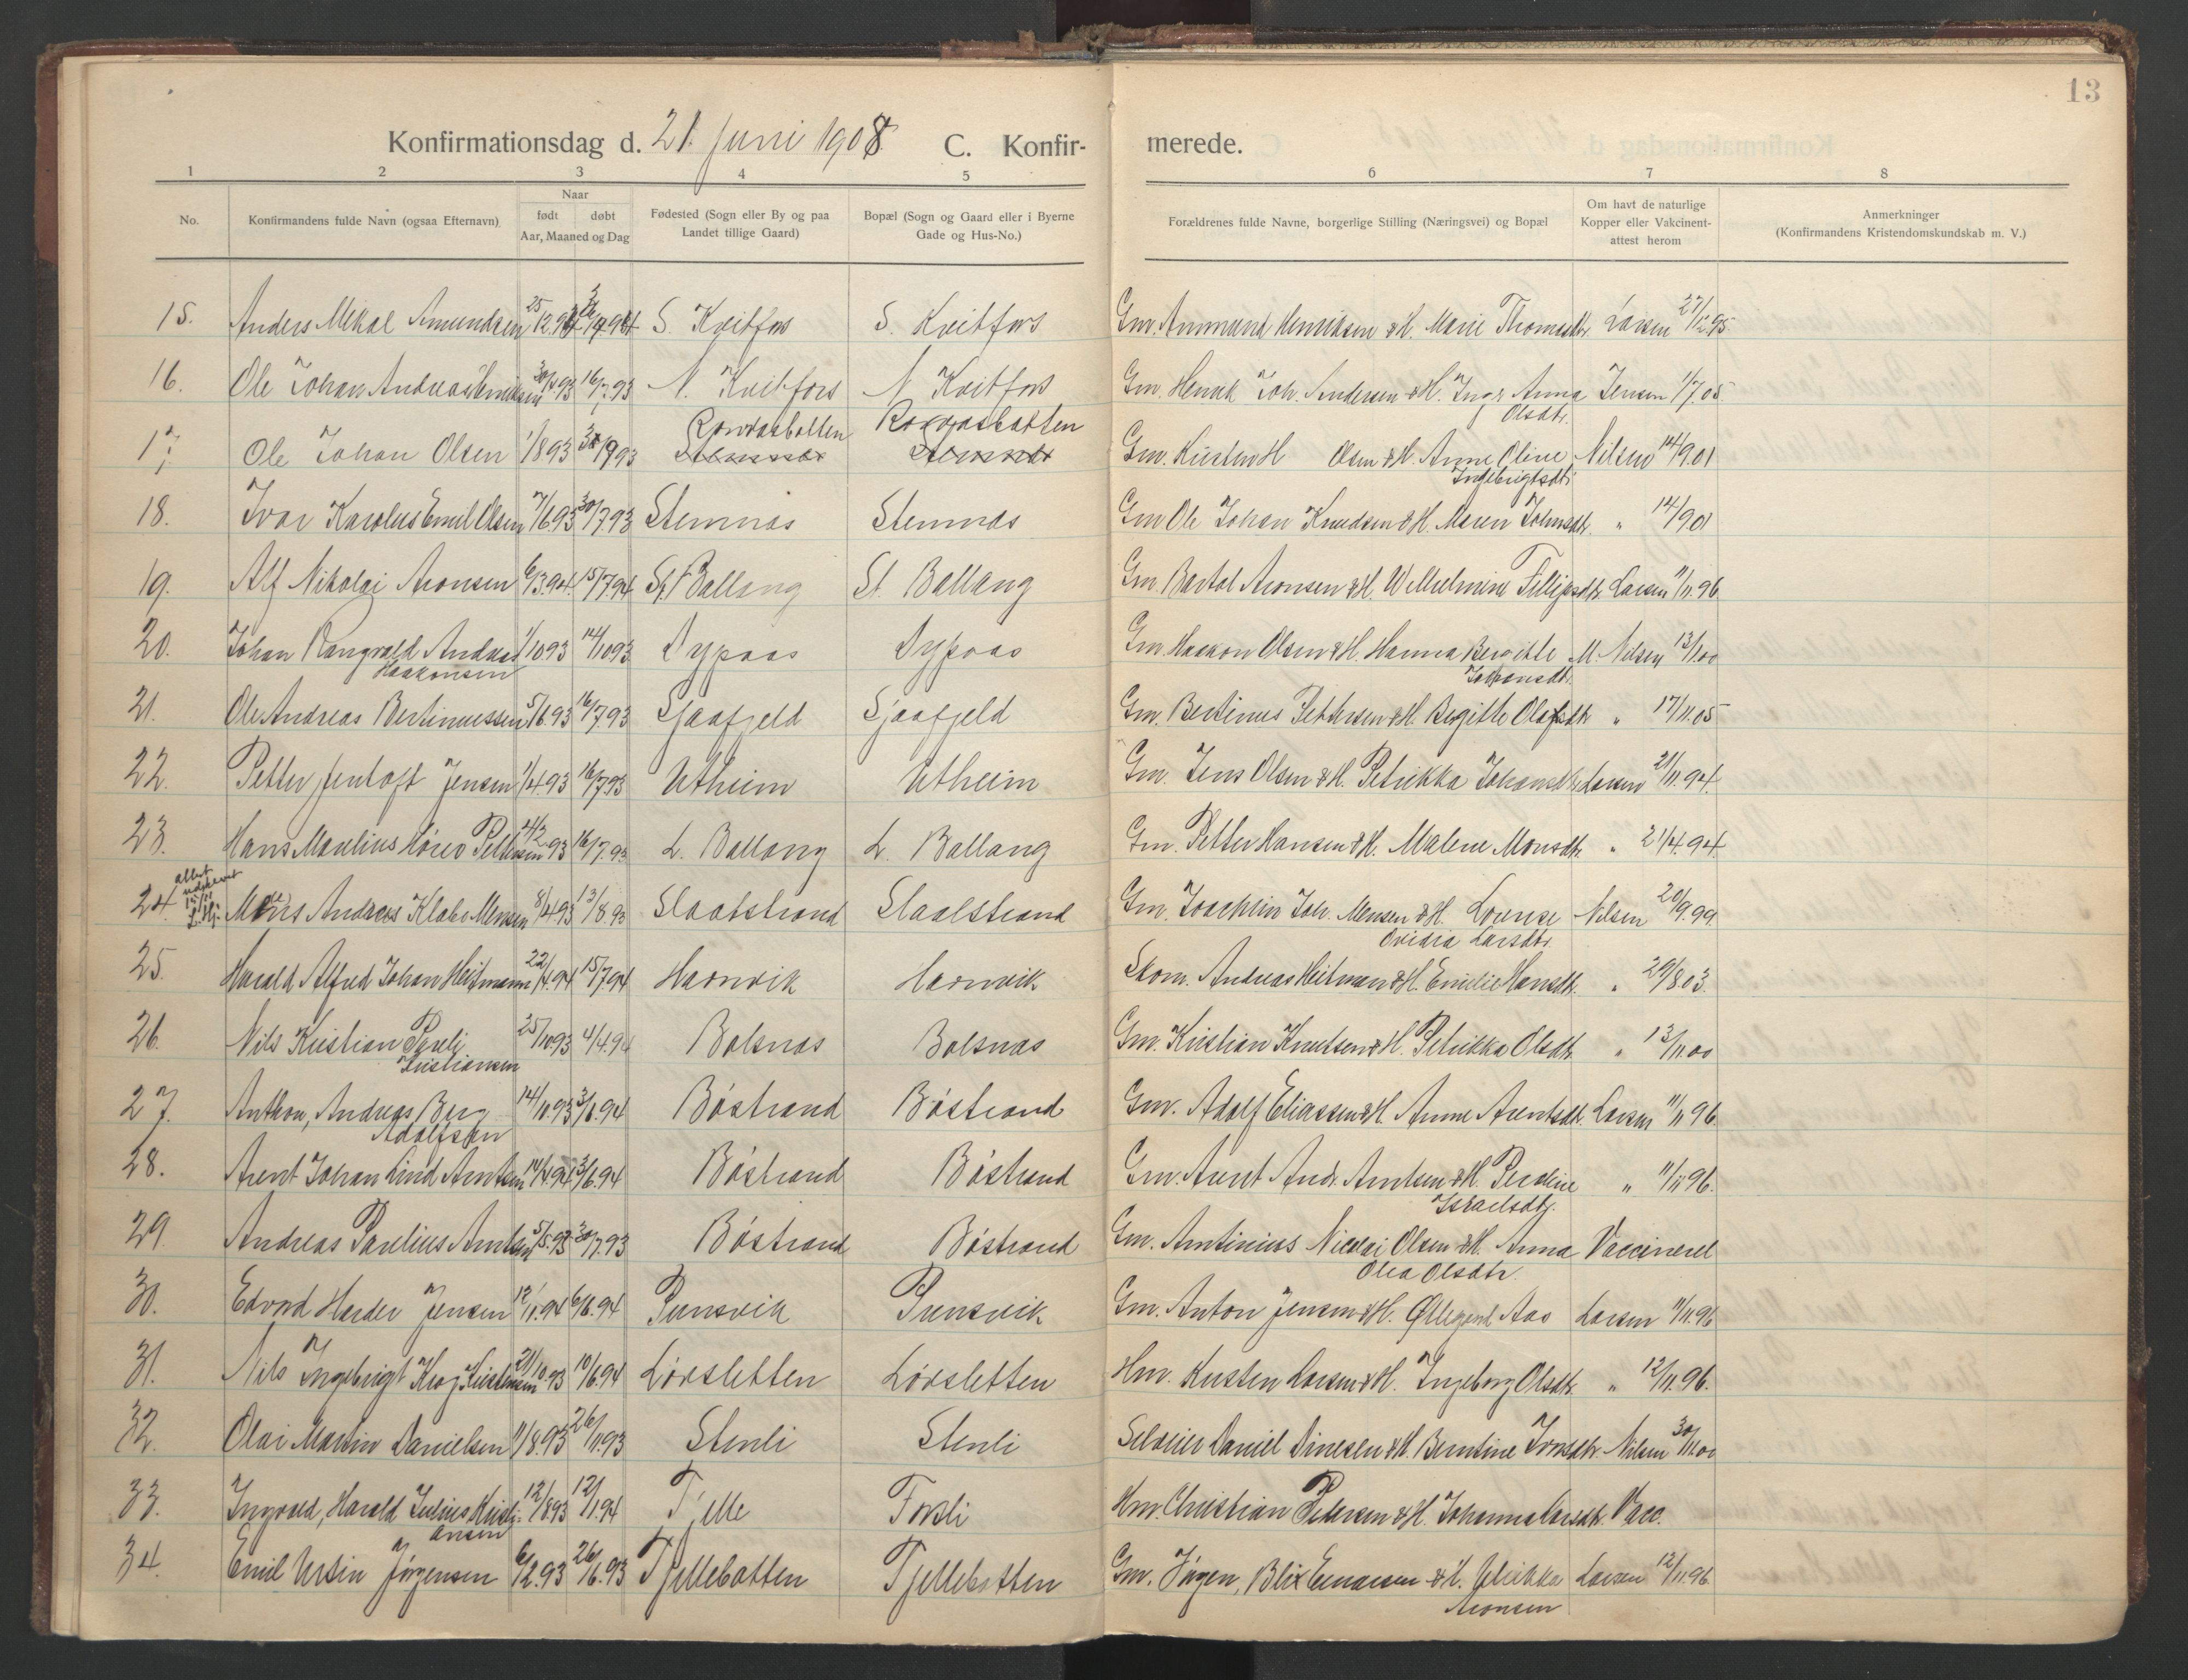 13
Konfirmationsdag d. 21. Juni 1908 C. Konfir- merede.
1 2 3 4 5 6 7 8
No. Konfirmandens fulde Navn (ogsaa Efternavn) Naar født døbt Aar, Maaned og Dag Fødested (Sogn eller By og paa Landet tillige Gaard) Bopæl (Sogn og Gaard eller i Byerne Gade og Hus-No.) Forældrenes fulde Navne, borgerlige Stilling (Næringsvei) og Bopæl Om havt de naturlige Kopper eller Vakcinent- attest herom Anmerkninger (Konfirmandens Kristendomskundskab m. V.)
15. Anders Mikal Amundsen S. Kvitfors S. Kvitfors Gm. Ammund Henriksen & H. Marie Thomasdtr. Larsen 27/12 95
16. Ole Johan Andreas Henriksen 16/7.93 N. Kvitfors N. Kvitfors Gm. Henrik Joh. Andersen & H. Inger Anna Jensen 1/7.05
Olsdtr.
17. Ole Johan Olsen 1/8 93 30/9 93 Gm. Kirsten H Olsen & H. Anne Oline Nilsen 14/9.01
Ingebrigtsdtr.
18. Ivar Karolus Emil Olsen 7/6 93 30/7.93 Stemnæs Stemnæs Gm Ole Johan Knudsen & H. Maren Johnsdtr. " 14/9 01
19. Alf Nikolai Aronsen 6/3.94. 15/7.94 St. Ballang St. Ballang Gm. Bartol Aronsen & H. Wilhelmine Fillipsdtr. Larsen 11/11.96
20. Johan Rangvald Andreas 1/10 93 14/10 93 Dypaas Dypaas Gm. Haakon Olsen & H. Hanna Bergitte M. Nilsen 13/11.00
Haakonsen Johansdtr.
21. Ole Andreas Bertinussen 5/6.93 16/7.93 Sjaafjeld Sjaafjeld Gm. Bertinus Pettersen & H. Bergitte Olafsdtr " 17/11.05
22. Petter Jentoft Jensen 1/4.93 16/7.93 Utheim Utheim Gm. Jens Olsen & H. Petrikka Johansdtr. Larsen 21/11.94.
23. Hans Maulius Høier Pettersen 16/7.93 L. Ballang L. Ballang Gm. Petter Hansen & H. Malene Monsdtr. " 21/4.94.
24. Andreas Klabo Mensen 8/4 93 13/8.93 Slaatstrand Slaatstrand Gm. Joachim Joh. Mensen & H. Lovise Nilsen 20/9.99.
Ovidia Larsdtr.
25. Harald Alfred Johan Heitmann 22/4.94 15/7.94 Havnvik Havnvik Skom. Andreas Heitman & H. Emilie Hansdtr. " 29/8.03.
26. Nils Kristian Pareli 25/10 93 4/4.94 Balsnæs Balsnæs Gm. Kristian Knutsen & H. Petrikka Olsdtr. " 13/11.00
Kristiansen
27. Anthon, Andreas Berg 14/11 93 3/6.94 Bøstrand Bøstrand Gm. Adolf Eliassen & H. Anne Arentsdtr. Larsen 11/11 96.
Adolfsen
28. Arent Johan Lind Arntsen 14/4.94 3/6.94 Bøstrand Bøstrand Gm. Arent Andr. Arntsen & H. Peroline " 11/11 96.
Israelsdtr.
29. Andreas Parelius Arntsen 5/5.93 30/7.93 Bøstrand Bøstrand Gm. Arntinius Nicolai Olsen & H. Anna Vaccineret
Olea Olsdtr.
30. Edvard Harder Jensen 12/1.94 6/6.94 Punsvik Punsvik Gm. Anton Jensen & H. Øllegard Aas Larsen 11/11.96
31. Nils Ingebrigt Krog Kirstensen 21/10.93 10/6.94 Lørsletten Lørsletten Hm. Kirsten Larsen & H. Ingeborg Olsdtr. " 12/11.96.
32. Olai Martin Danielsen 11/8.93 26/11.93 Stenli Stenli Selveier Daniel Dinesen & H. Berntine Jonsdtr. Nilsen 30/11.00
33. Ingvald, Harald Julius Kristi- 12/8 93 12/1.94 Tjelle Forsli Hm. Christian Petersen & H. Johanna Larsdtr. Vacc.
ansen
34. Emil Ursin Jørgensen 6/2.93 26/6.93 Tjellebotten Tjellebotten Gm. Jørgen, Blix Einarsen & H. Ulrikka Larsen 12/11.96
Aronsen